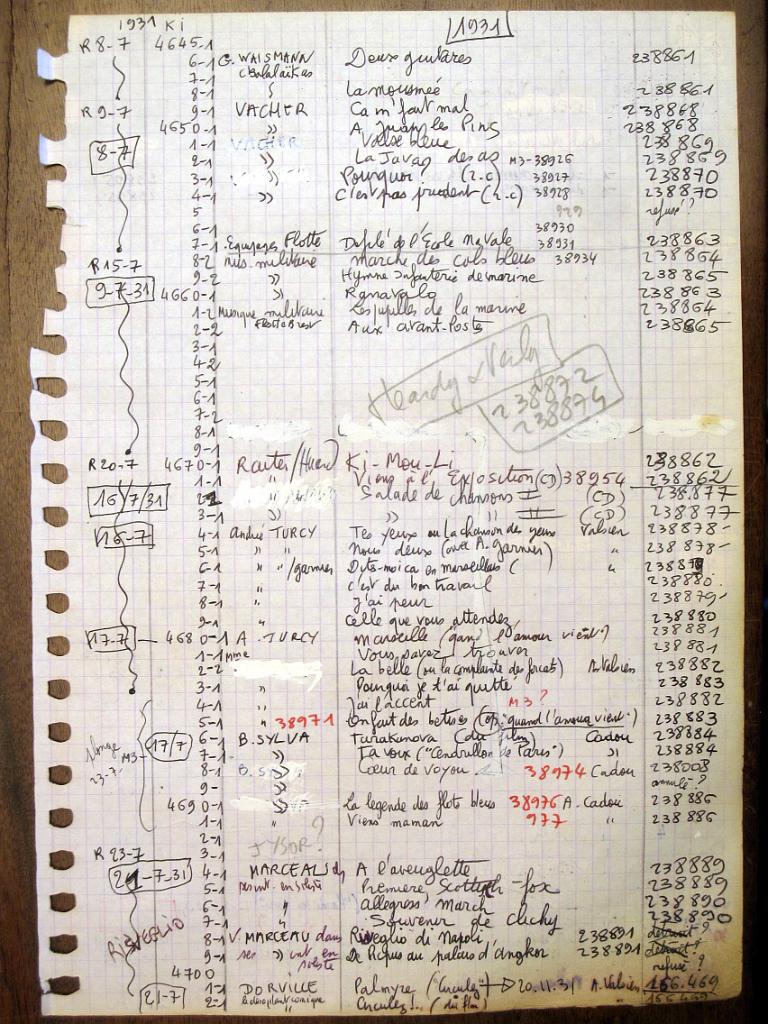 1931 Ki 1931
R 8-7 4645-1
6-1 G. WAISMANN Deux guitares 238861
7-1 Balalaïkas
8-1 La mousmée 238861
R 9-7 9-1 VACHER Ca m'fait mal 238868
4650-1 " A Juan les Pins 238868
8-7 1-1 VACHER Valse bleue 238869
2-1 " La Java des as M3-38926 238869
3-1 " Pourquoi? (r.c) 38927 238870
4-1 " C'est pas prudent (r.c) 38928 238870
5 929 refusé?
6-1 38930
7-1 Equipages Flotte Défilé de l'École navale 38931 238863
R 15-7 8-2 mus. militaire Marche des cols bleus 38934 238864
9-2 " Hymne Infanterie de marine 238865
9-7-31 4660-1 " Ranavalo 238863
1-2 Musique militaire Les pupilles de la marine 238864
2-2 Flotte Brest Aux avant-postes 238865
3-1
4-2
5-1
6-1 238872
7-2 238874
8-1
9-1
R 20-7 4670-1 Rauter/Huard Ki-Mou-Li 238862
1-1 " Viens à l'Exposition (CD) 38954 238862
16/7/31 2-1 " Salade de chansons I (CD) 238877
3-1 " " II (CD) 238877
16-7 4-1 André TURCY Tes yeux ou la chanson des yeux Valsien 238878
5-1 " " Nous deux (avec A. garnier) " 238878
6-1 " "/garnier Dites-moi ça en marseillais ( " 238879
7-1 " c'est du bon travail 238880
8-1 " j'ai peur 238879
9-1 " Celle que vous attendez 238880
17-7 4680-1 A. TURCY Marseille (dans "l'amour vient") 238881
1-1 Mme Vous savez trouver 238881
2-2 La belle (ou la complainte des forçats) A. Valsien 238882
3-1 " Pourquoi je t'ai quitté 238883
4-1 J'ai l'accent M3? 238882
5-1 " 38971 On fait des betises (Op: "quand l'amour vient") 238883
17/7 6-1 B. SYLVA Tarakanova (du film) Cadou 238884
M3 7-1 " Ta voix ("Cendrillon de Paris") " 238884
23-7 8-1 B. S " Cœur de voyou 38974 Cadou 238008
9- " annulé?
4690-1 La legende des flots bleus 38976 A. Cadou 238886
1-1 " Viens maman 977 " 238886
2-1
R 23-7 3-1 JYSOR?
21-7-31 4-1 MARCEAU A l'aveuglette 238889
5-1 Premiere Scottish-fox 238889
6-1 " allegress' march 238890
7-1 " Souvenir de clichy 238890
RISVEGLIO 8-1 V. MARCEAU dans Risveglio di Napoli 238891 détruit?
9-1 ses " int en soliste De Repus au palais d'angkor 238891 détruit?
4700 refusé?
21-7 1-1 DORVILLE Palmyre ("Circulez") → 20.11.31 A. Valsien 166.469
2-1 Circulez!.. (du film) " 166.469